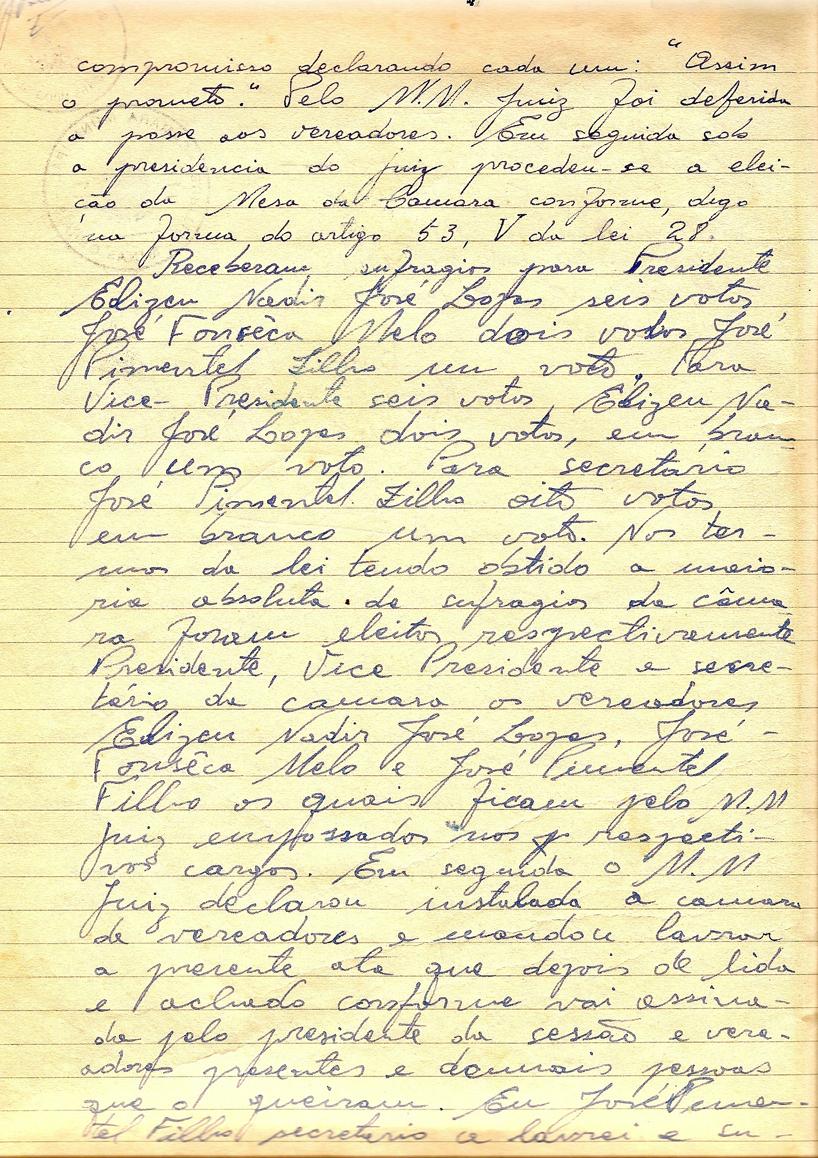 compromisso declarando cada um: "Assim
o prometo." Pelo M.M. Juiz foi deferida
a posse aos vereadores. Em seguida sob
a presidencia do juiz procedeu-se a elei-
ção da Mesa da Camara conforme, digo
na forma do artigo 53, V da lei 28.
Receberam sufragios para Presidente
Elizeu Nadir José Lopes seis votos
José Fonsêca Melo dois votos José
Pimentel Filho um voto. Para
Vice-Presidente seis votos, Elizeu Na-
dir José Lopes dois votos, em bran-
co um voto. Para secretário
José Pimentel Filho oito votos
em branco um voto. Nos ter-
mos da lei tendo obtido a maio-
ria absoluta de sufragios da câma-
ra foram eleitos respectivamente
Presidente, Vice Presidente e secre-
tário da camara os vereadores
Elizeu Nadir José Lopes, José
Fonsêca Melo e José Pimentel
Filho os quais ficam pelo M.M
Juiz empossados nos respecti-
vos cargos. Em seguida o M.M
Juiz declarou instalada a camara
de vereadores e mandou lavrar
a presente ata que depois de lida
e achado conforme vai assina-
da pelo presidente da sessão e vere-
adores presentes e demais pessoas
que o queiram. Eu José Pimen-
tel Filho secretario a lavrei e su-